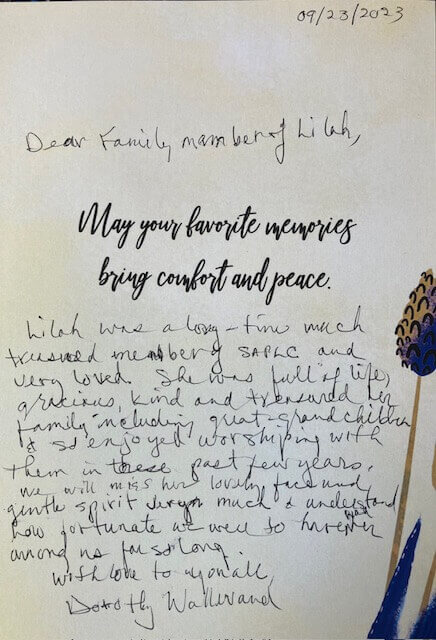 09/23/2023
Dear Family member of Lilah,
May your favorite memories
bring comfort and peace.
Lilah was a long-time much
treasured member of SAPLC and
very loved. She was full of life,
gracious, kind and treasured her
family including great-grandchildren
& so enjoyed worshiping with
them in these past few years.
We will miss her lovely face and
gentle spirit very much & understand
how fortunate we were to have had her
among us for so long.
With love to you all,
Dorothy